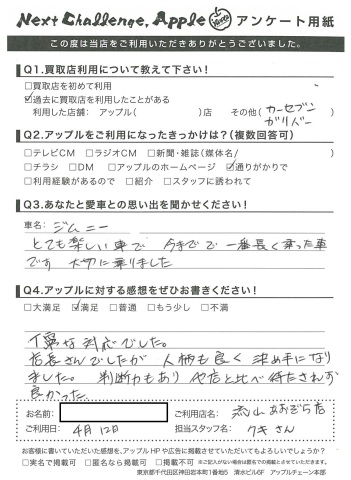 Next Challenge, Apple アンケート用紙
この度は当店をご利用いただきありがとうございました。
Q1.買取店利用について教えて下さい!
□買取店を初めて利用
☑過去に買取店を利用したことがある
利用した店舗: アップル( )店 その他( カーセブン ガリバー )
Q2.アップルをご利用になったきっかけは?(複数回答可)
□テレビCM □ラジオCM □新聞・雑誌(媒体名/ )
□チラシ □DM □アップルのホームページ ☑通りがかりで
□利用経験があるので □紹介 □スタッフに誘われて
Q3.あなたと愛車との思い出を聞かせください!
車名: ジムニー
とても楽しい車で 今までで一番長く乗った車
です 大切に乗りました
Q4.アップルに対する感想をぜひお書きください!
□大満足 ☑満足 □普通 □もう少し □不満
丁寧な対応でした。
店長さんでしたが 人柄も良く 決め手になり
ました。 判断力もあり 他店と比べ待たされず
良かった。
お名前: ご利用店名: 流山おおぞら店
ご利用日: 4月12日 担当スタッフ名: クキさん
お客様に書いていただいた感想を、アップルHPや広告に掲載させていただいてもよろしいでしょうか?
□実名で掲載可 □匿名なら掲載可 □掲載不可 ※ご記入がない場合は匿名での掲載とさせていただきます。
東京都千代田区神田岩本町1番地5 清水ビル5F アップルチェーン本部